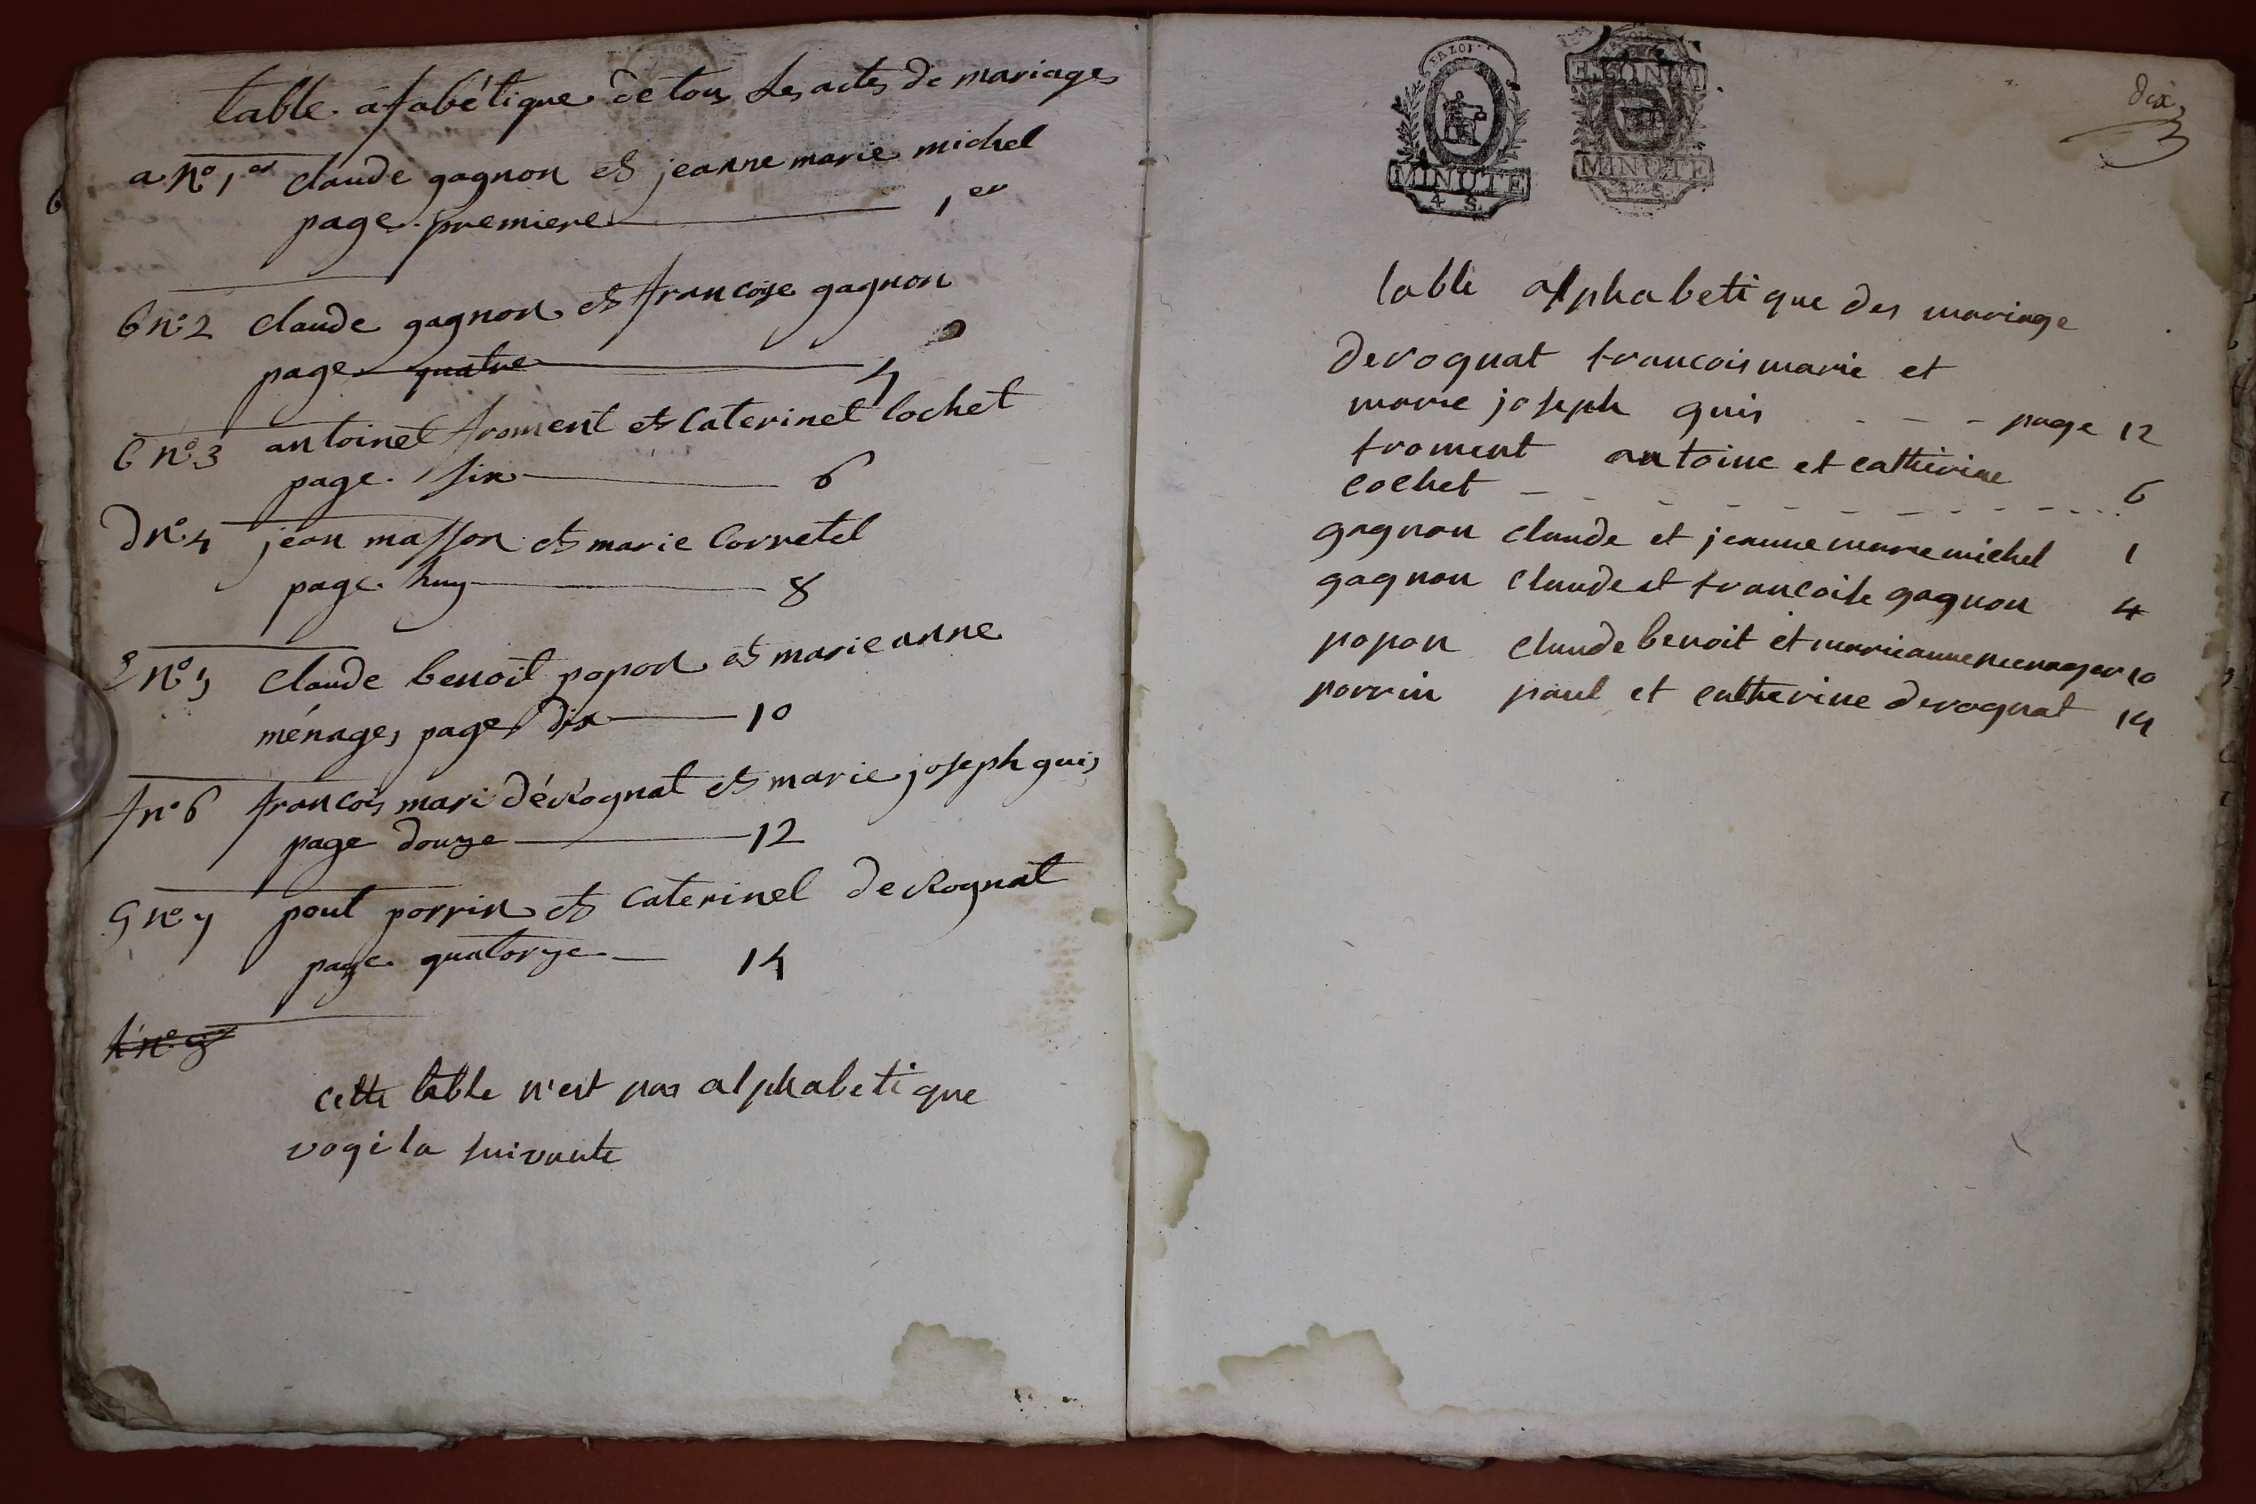 table afabétique de tous les actes de mariages
a n° 1er claude gagnon et jeanne marie michel
page premiere 1er
b n° 2 claude gagnon et francoise gagnon
page quatre 4
C n° 3 antoinet froment et Caterinet Cochet
page six 6
d n° 4 jean masson et marie Corretel
page huy 8
e n° 5 claude benoit popon et marie anne
ménages page dix 10
f n° 6 francois mari dérognat et marie joseph guis
page douze 12
g n° 7 poul porrin et Caterinel derognat
page quatorze 14
h n° 8
cette table n'est pas alphabetique
voyé la suivante
MINUTE
4 S.
MINUTE
dix
table alphabetique des mariage
derognat francois marie et
marie joseph guis - - - page 12
froment antoine et catherine
cochet 6
gagnon claude et jeanne marie michel 1
gagnon claude et francoise gagnon 4
popon claude benoit et marie anne menager 10
porrin paul et catherine derognat 14